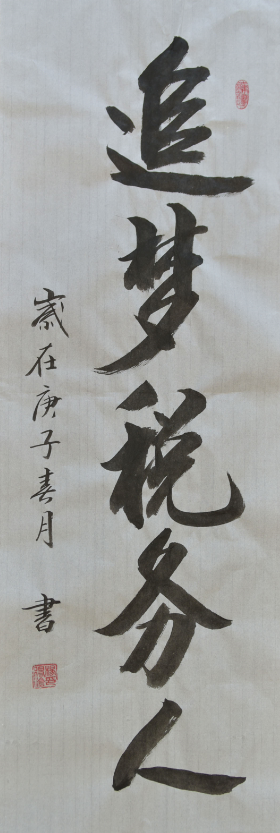 追梦税务人
岁在庚子春月 書